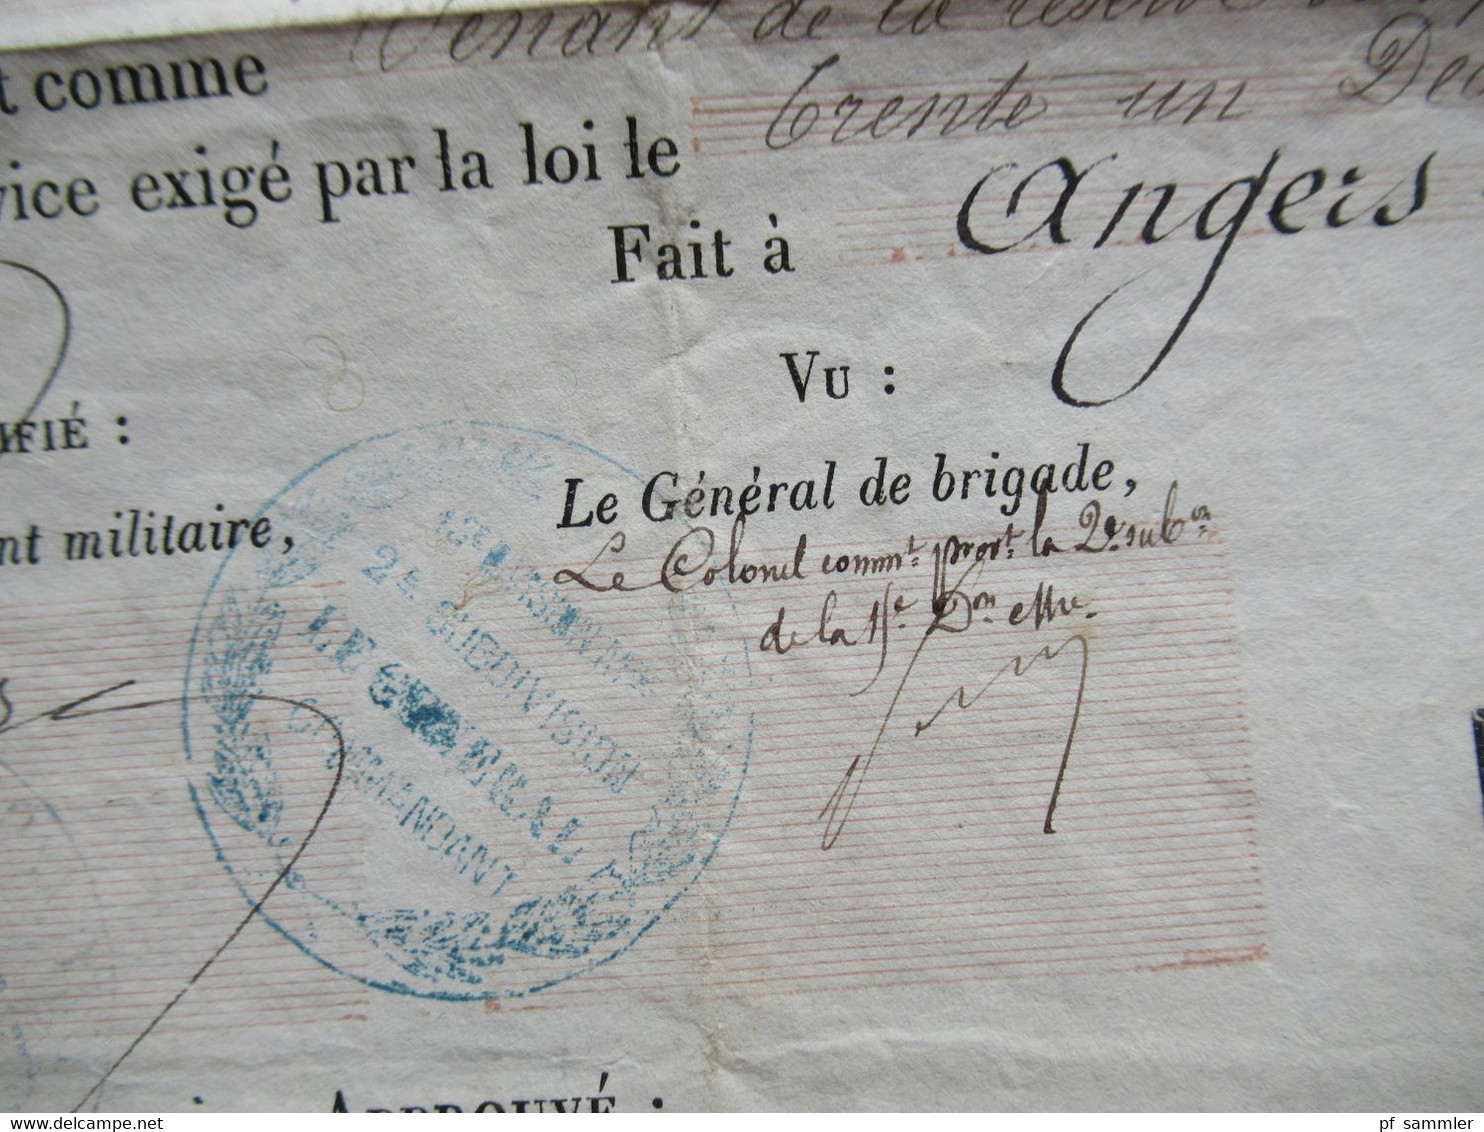 Venant de la réserve
t comme
Trente un Dé
vice exigé par la loi le
Fait à Angers
Vu :
IFIÉ :
Le Général de brigade,
nt militaire,
Le Colonel commt provt la 2e subon
de la 15e Don Mre
2e SUBDIVISION
LE GÉNÉRAL
COMMANDANT
APPROUVÉ :
pf sammler